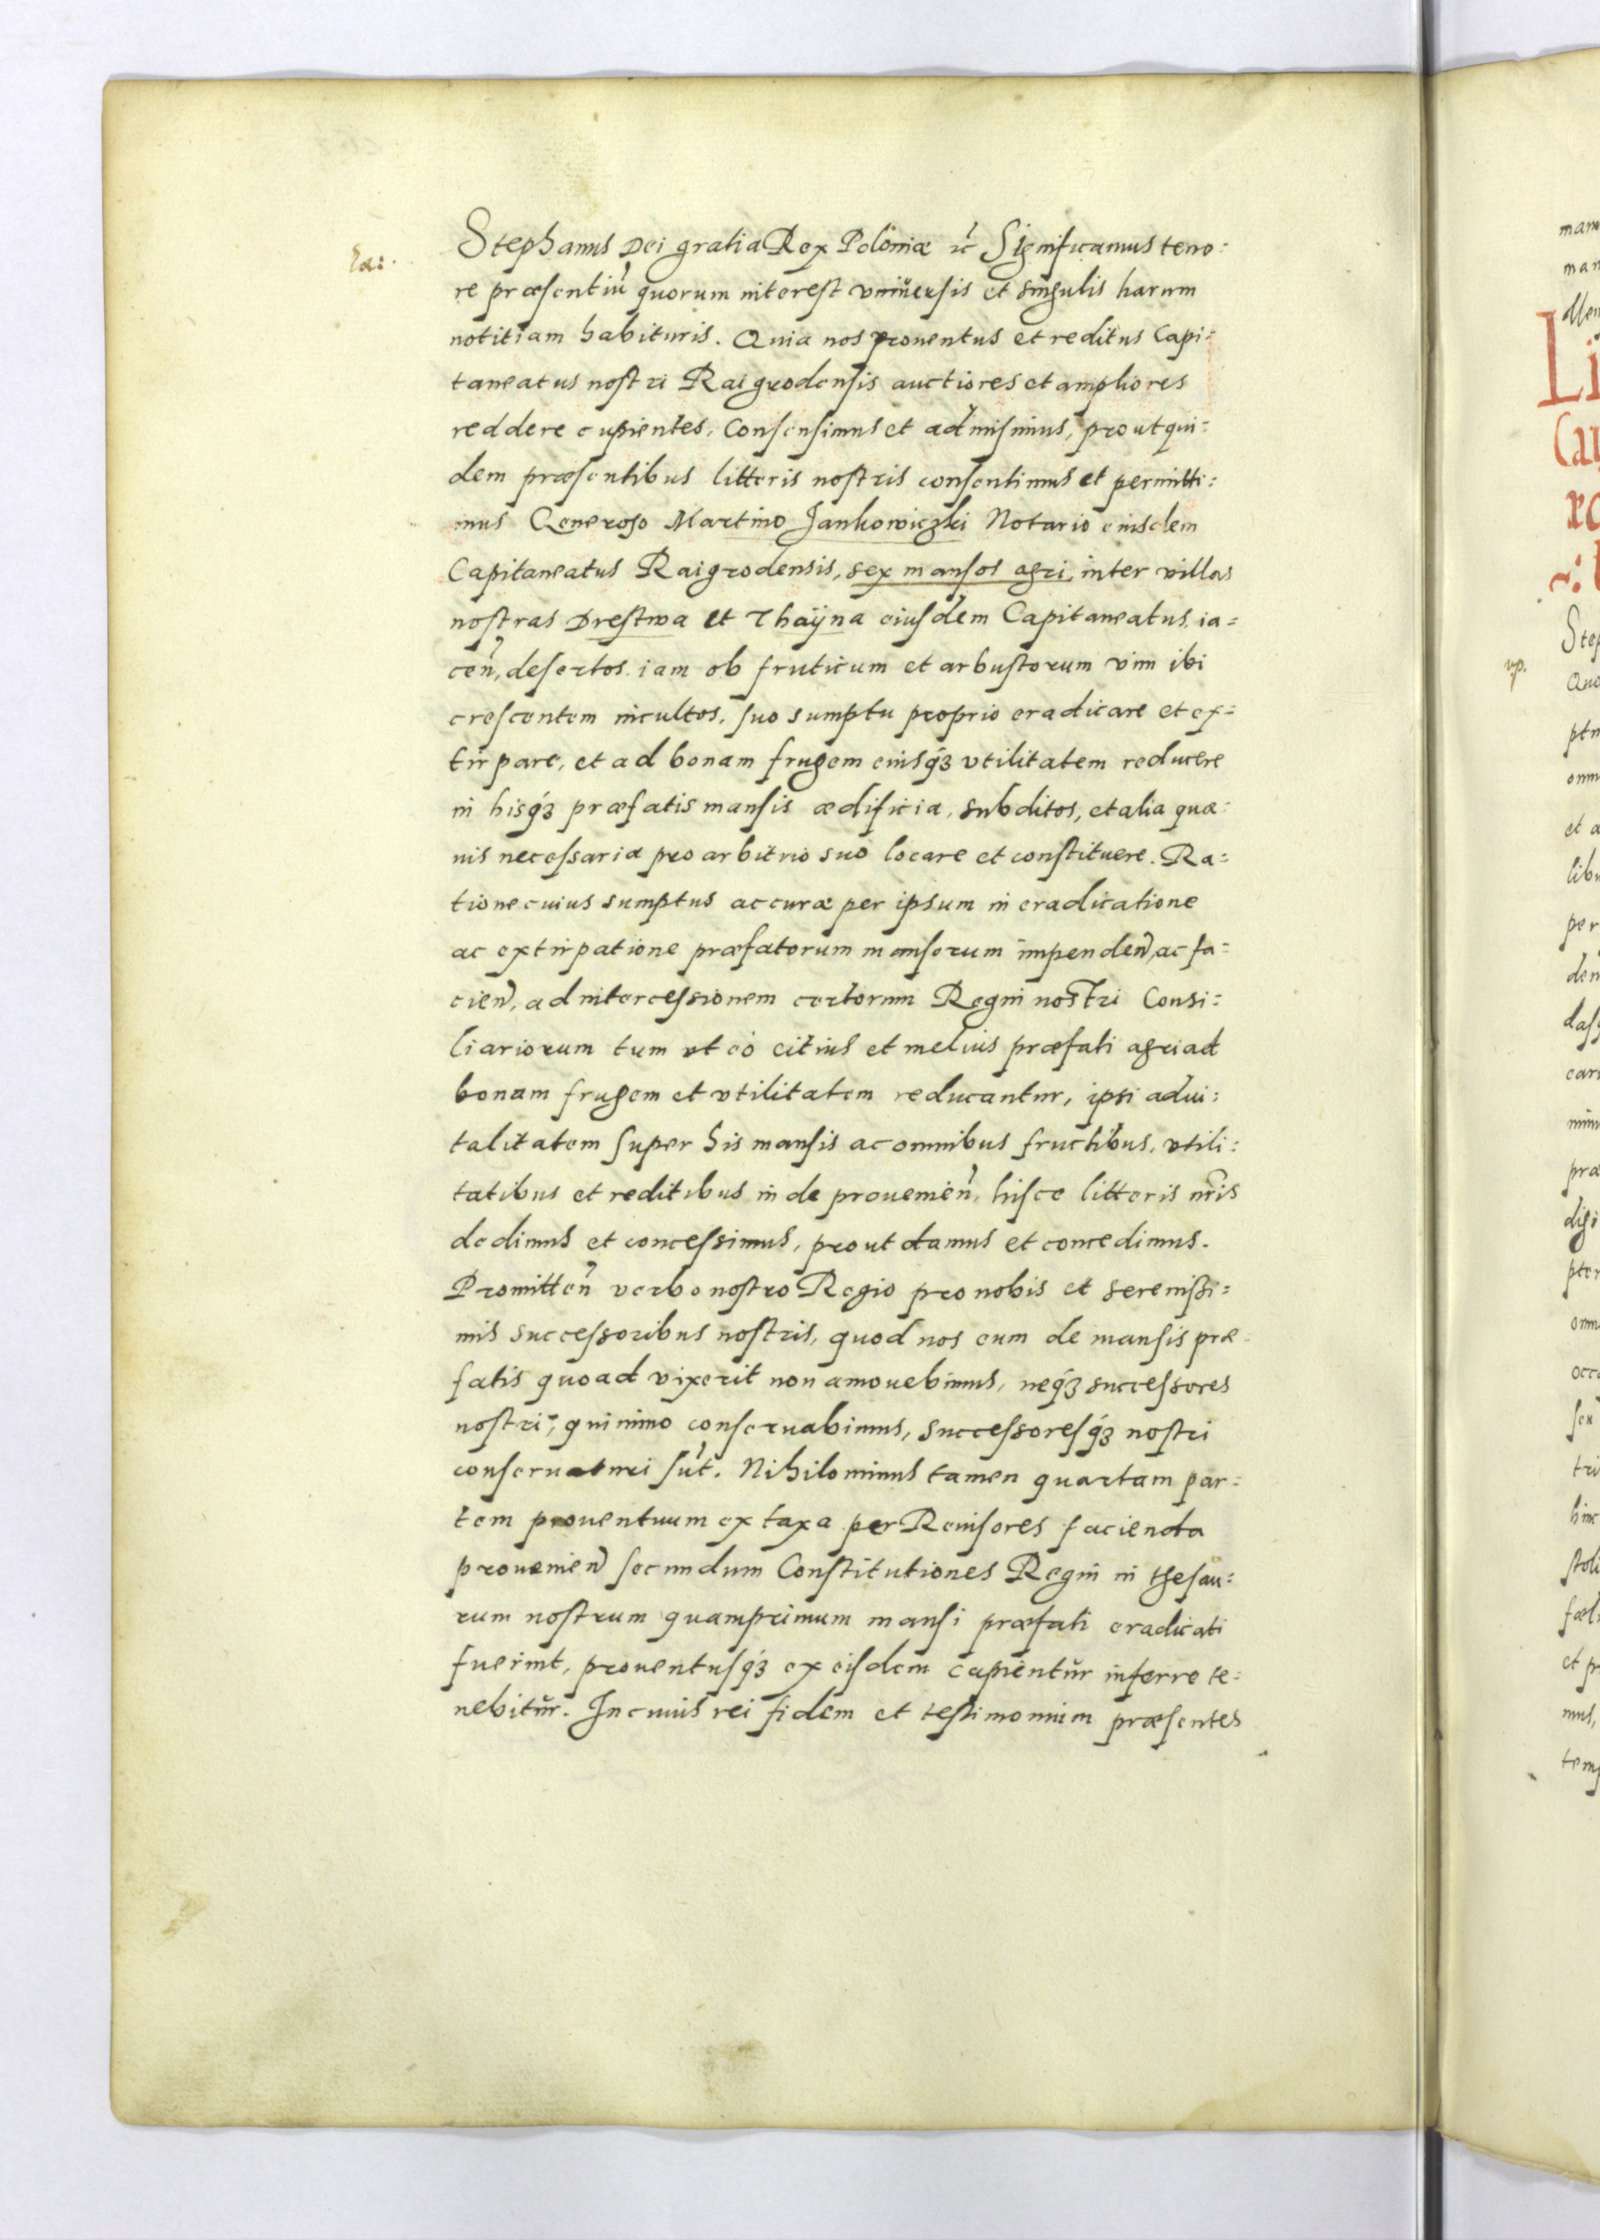 Stephanus Dei gratia Rex Poloniæ ꝛc̃ Significamus teno:
re præsentiũ quorum interest vniŭersis et singulis harum
notitiam habituris. Quia nos prouentus et reditus Capi:
taneatus nostri Raigrodensis auctiores et ampliores
reddere cupientes, Consensimus et admisimus, prout qui:
dem præsentibus litteris nostris consentimus et permitti:
mus Generoso Martino Jankowiczki Notario eiusdem
Capitaneatus Raigrodensis, sex mansos agri, inter villas
nostras Drestwa et Thaÿna eiusdem Capitaneatus ia=
ceñ, desertos iam ob fruticum et arbustorum vim ibi
crescentem incultos, suo sumptu proprio eradicare et ex=
tirpare, et ad bonam frugem eiusq́ꝫ vtilitatem reducere
in hisq́ꝫ præfatis mansis ædificia, subditos, et alia quæ:
uis necessaria pro arbitrio suo locare et constituere. Ra:
tione cuius sumptus ac curæ per ipsum in eradicatione
ac extirpatione præfatorum mansorum impendeñ, ac fa:
cieñ, ad intercessionem certorum Regni nostri Consi:
liariorum tum vt eò citius et melius præfati agri ad
bonam frugem et vtilitatem reducantur, ipsi adui:
talitatem super his mansis ac omnibus fructibus, vtili:
tatibus et reditibus inde prouenieñ, hisce litteris nr̃is
dedimus et concessimus, prout damus et concedimus.
Promitteñ verbo nostro Regio pro nobis et serenissi:
mis successoribus nostris, quod nos eum de mansis præ:
fatis quoad vixerit non amouebimus, neq́ꝫ successores
nostri, quinimo conseruabimus, successoresq́ꝫ nostri
conseruaturi sũt. Nihilominus tamen quartam par:
tem prouentuum ex taxa per Reuisores facienda
prouenieñ secundum Constitutiones Regni in thesau:
rum nostrum quamprimum mansi præfati eradicati
fuerint, prouentusq́ꝫ ex eisdem capientŭr inferre te:
nebitŭr. In cuius rei fidem et testimonium præsentes